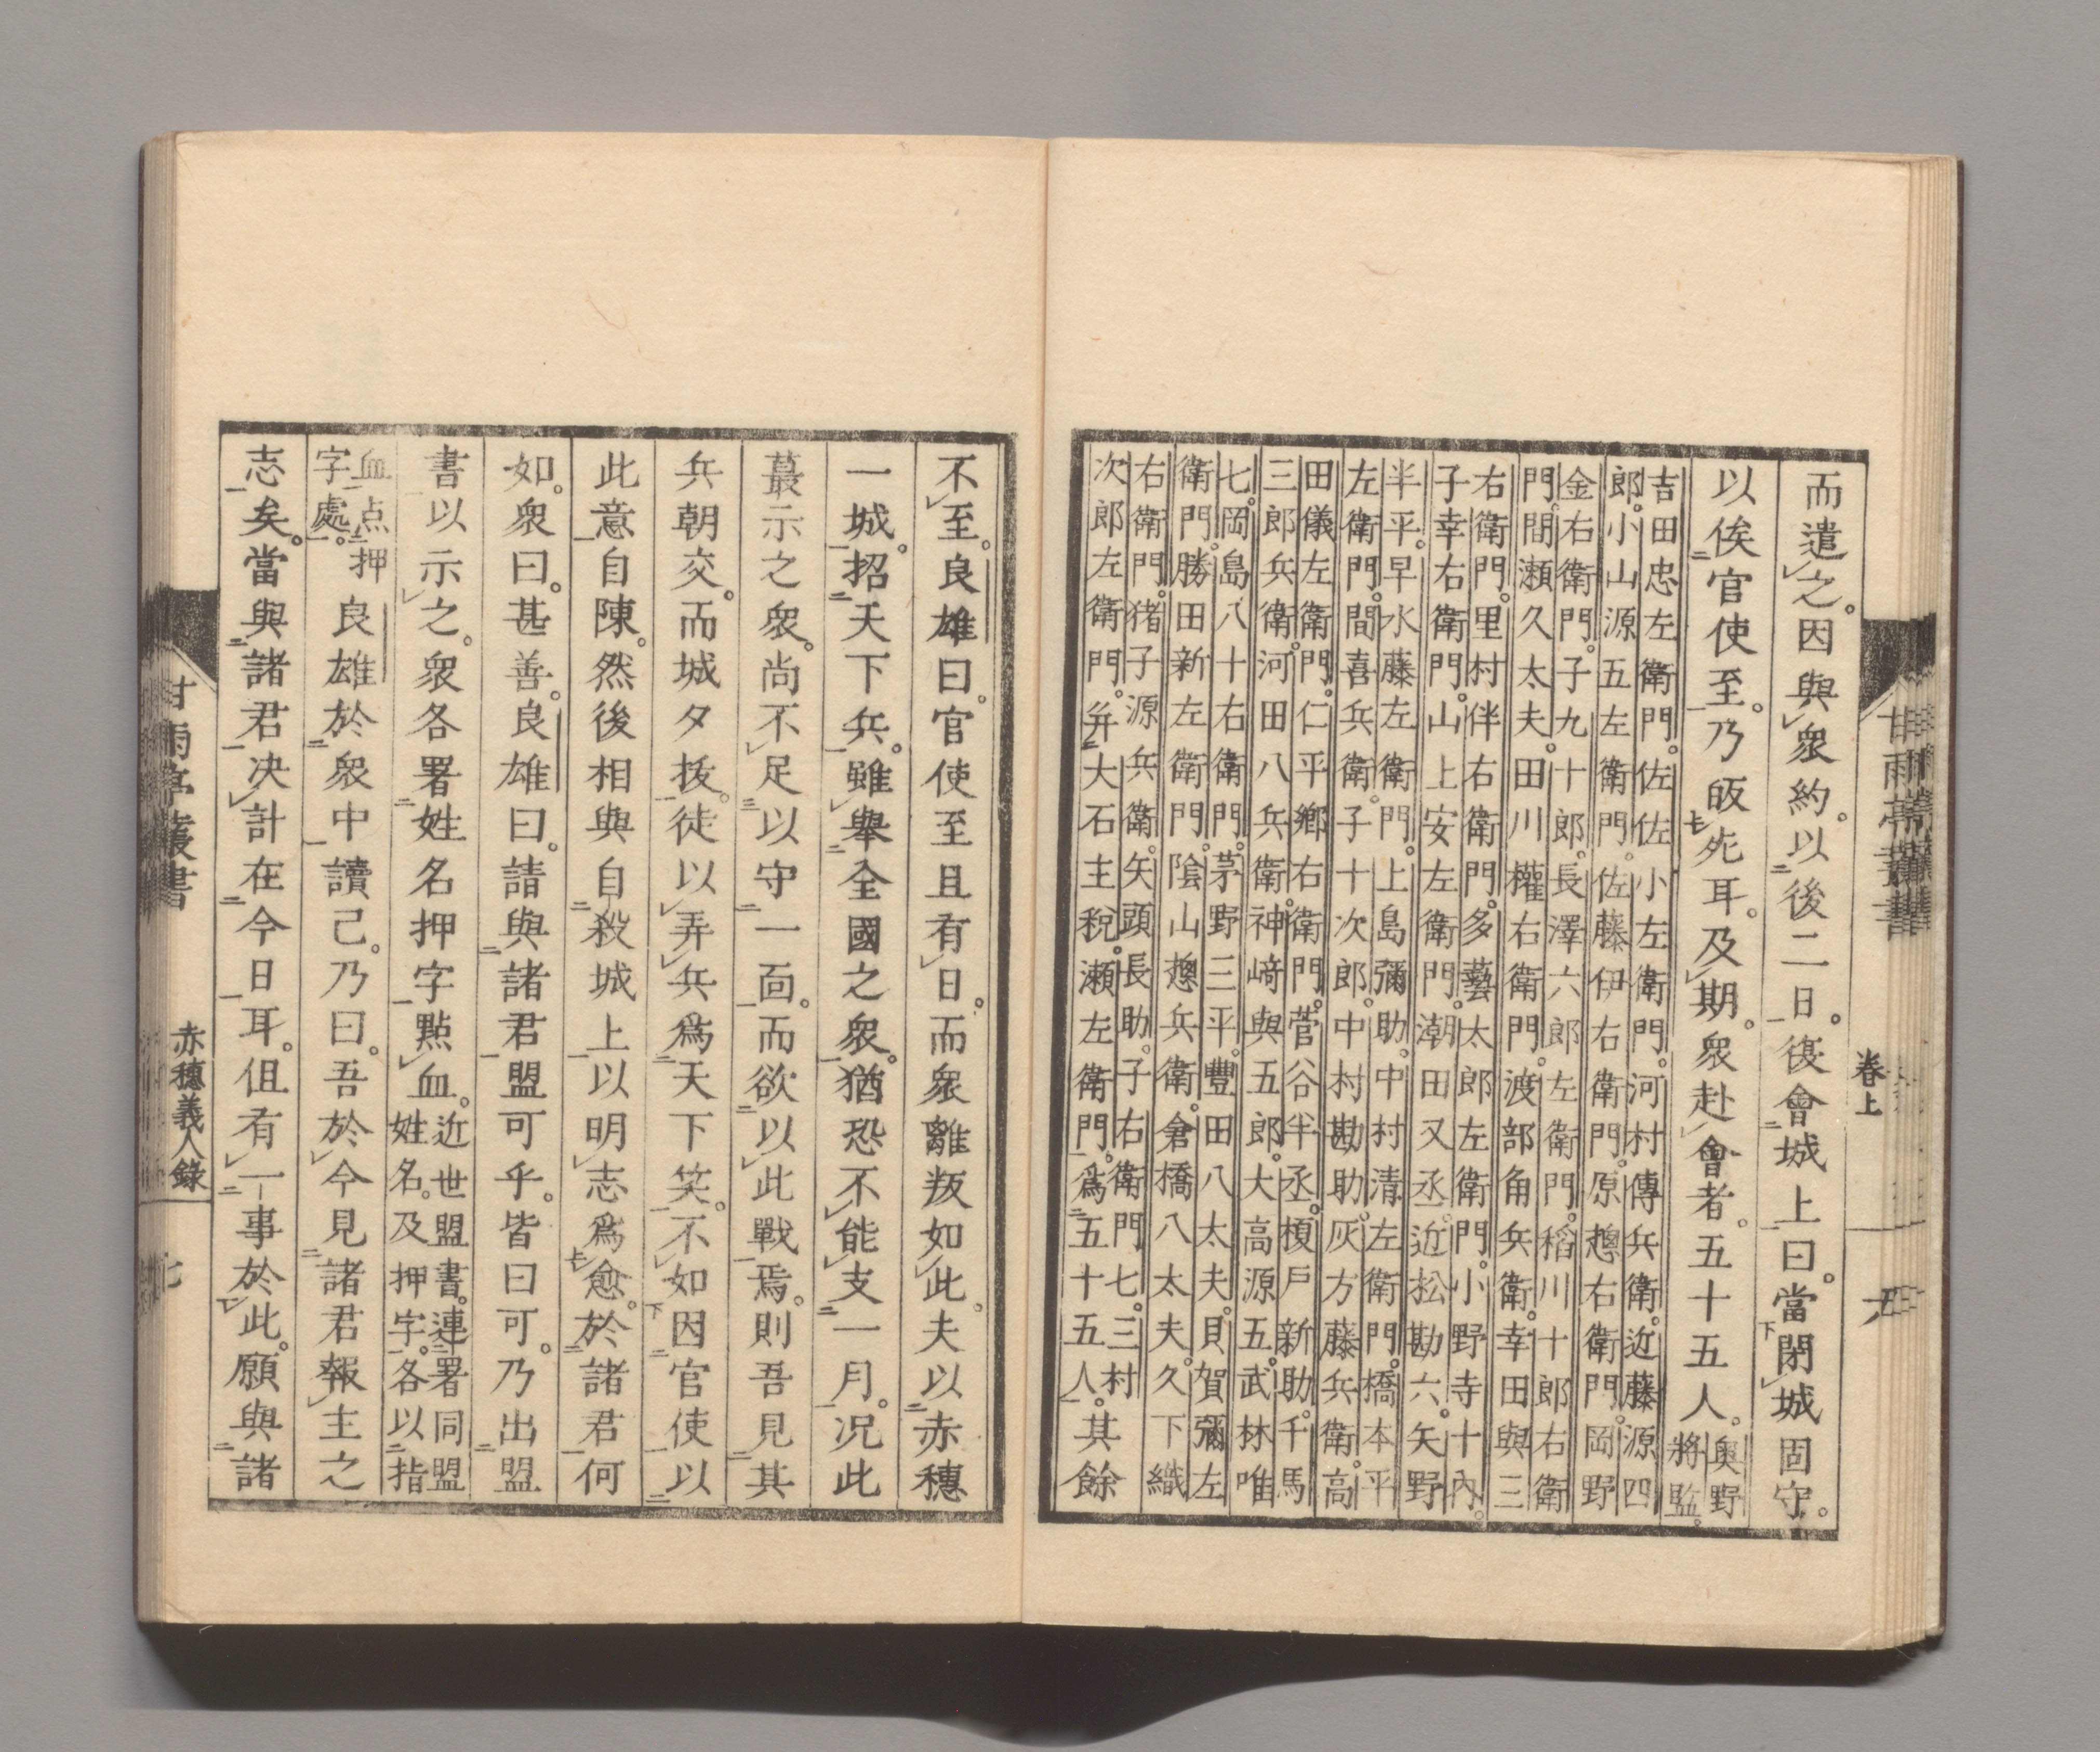 而遣之。因與衆約。以後二日。復會城上曰。當閉城固守。
以俟官使至。乃皈死耳。及期。衆赴會者。五十五人。奥野
將監。
吉田忠左衛門。佐佐小左衛門。河村傳兵衛。近藤源四
郎。小山源五左衛門。佐藤伊右衛門。原揔右衛門。岡野
金右衛門。子九十郎。長澤六郎左衛門。稻川十郎右衛
門。間瀬久太夫。田川權右衛門。渡部角兵衛。幸田與三
右衛門。里村伴右衛門。多藝太郎左衛門。小野寺十內。
子幸右衛門。山上安左衛門。潮田又丞。近松勘六。矢野
半平。早水藤左衛門。上島彌助。中村清左衛門。橋本平
左衛門。間喜兵衛。子十次郎。中村勘助。灰方藤兵衛。高
田儀左衛門。仁平鄉右衛門。菅谷半丞。榎戸新助。千馬
三郎兵衛。河田八兵衛。神﨑與五郎。大高源五。武林唯
七。岡島八十右衛門。茅野三平。豐田八太夫。貝賀彌左
衛門。勝田新左衛門。陰山揔兵衛。倉橋八太夫。久下織
右衛門。猪子源兵衛。矢頭長助。子右衛門七。三村
次郎左衛門。并大石主稅。瀬左衛門。爲五十五人。其餘
甘雨亭叢書
卷上
不至。良雄曰。官使至且有日。而衆離叛如此。夫以赤穗
一城。招天下兵。雖舉全國之衆。猶恐不能支一月。况此
蕞示之衆。尚不足以守一面。而欲以此戰焉。則吾見其
兵朝交。而城夕拔。徒以弄兵爲天下笑。不如因官使以
此意自陳。然後相與自殺城上以明志爲愈。於諸君何
如。衆曰。甚善。良雄曰。請與諸君盟可乎。皆曰可。乃出盟
書以示之。衆各署姓名押字點血。近世盟書。連署同盟
姓名。及押字。各以指
血点押
字處。良雄於衆中讀已。乃曰。吾於今見諸君報主之
志矣。當與諸君决計在今日耳。但有一事於此。願與諸
甘雨亭叢書
赤穗義人錄
七